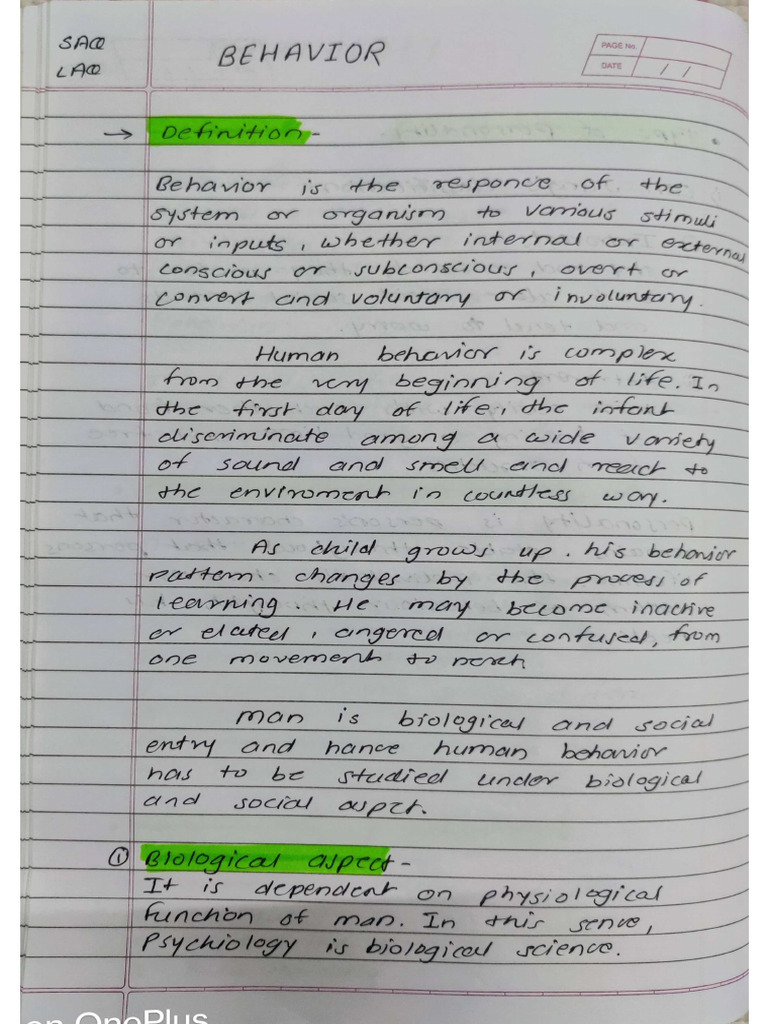 SAQ
LAQ
BEHAVIOR
PAGE No.
DATE / /
→ Definition -
Behavior is the responce of the
system or organism to various stimuli
or inputs, whether internal or external
conscious or subconscious, overt or
convert and voluntary or involuntary.
Human behavior is complex
from the very beginning of life. In
the first day of life, the infant
discriminate among a wide variety
of sound and smell and react to
the enviroment in countless way.
As child grows up. his behavior
pattern changes by the process of
learning. He may become inactive
or elated, angered or confused, from
one movement to
man is biological and social
entry and hance human behavior
has to be studied under biological
and social aspct.
① Biological aspect -
It is dependent on physiological
function of man. In this sense,
Psychiology is biological science.
on OnePlus